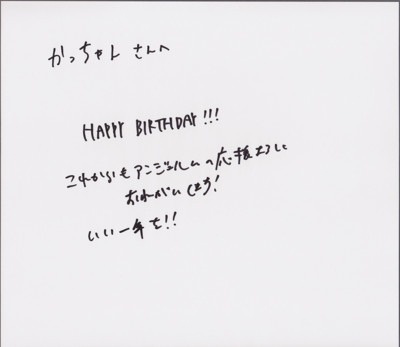 かっちゃん さんへ
HAPPY BIRTHDAY!!!
これからもアンジュルムの応援よろしく
おねがいします!
いい一年を!!